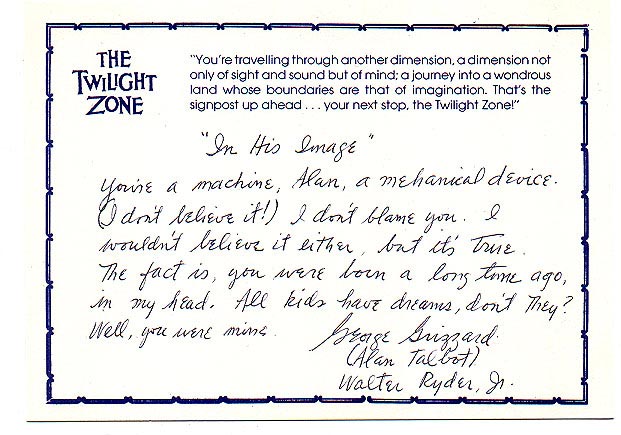 THE
TWILIGHT
ZONE
"You're travelling through another dimension, a dimension not
only of sight and sound but of mind; a journey into a wondrous
land whose boundaries are that of imagination. That's the
signpost up ahead . . . your next stop, the Twilight Zone!"
"In His Image"
You're a machine, Alan, a mehanical device.
(I don't believe it!) I don't blame you. I
wouldn't believe it either, but it's true.
The fact is, you were born a long time ago,
in my head. All kids have dreams, don't they?
Well, you were mine.
George Grizzard
(Alan Talbot)
Walter Ryder, Jr.